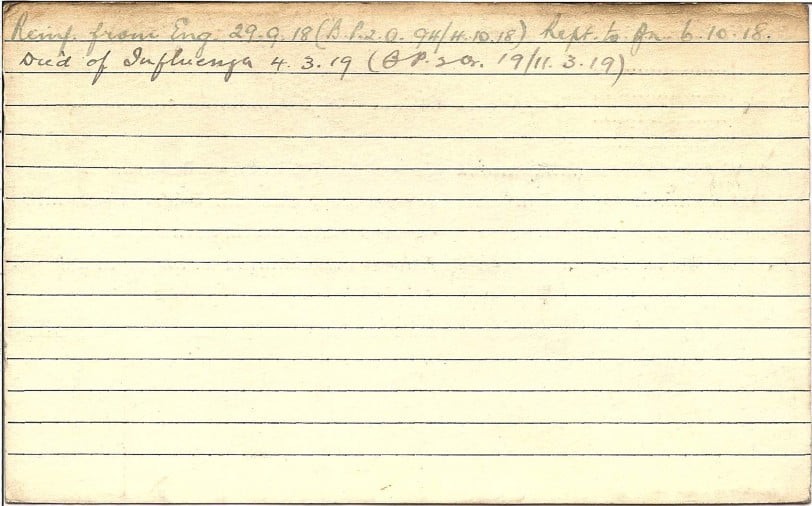 Reinf. from Eng. 29.9.18 (B.P.2.O. 94/4.10.18) Rept. to Bn. 6.10.18.
Died of Influenza 4.3.19 (B P. 2 Or. 19/11.3.19)